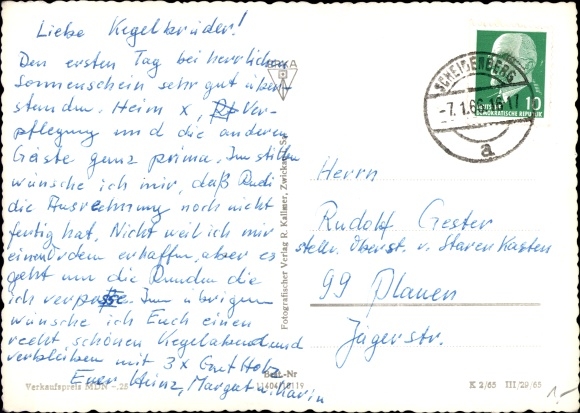 Liebe Kegelbrüder!
Den ersten Tag bei herrlichen
Sonnenschein sehr gut über-
standen. Heim x, Ver-
pflegung und die anderen
Gäste ganz prima. Im stillen
wünsche ich mir, daß Rudi
die Ausrechnung noch nicht
fertig hat. Nicht weil ich mir
einen Orden erhoffen, aber es
geht um die Runden die
ich verpasse. Im übrigen
wünsche ich Euch einen
recht schönen Kegelabend und
verbleiben mit 3x Gut Holz
Euer Heinz, Margut u. Karin
Verkaufspreis MDN -,25
Best.-Nr
Fotografischer Verlag R. Kallmer, Zwickau Sa.
SCHEIBENBERG
-7.1.66.16-17
a
10
DEUTSCHE
DEMOKRATISCHE REPUBLIK
Herrn
Rudolf Gester
stellv. Oberst. v. Staren Kasten
99 Plauen
Jägerstr.
K 2/65 III/29/65
1,-